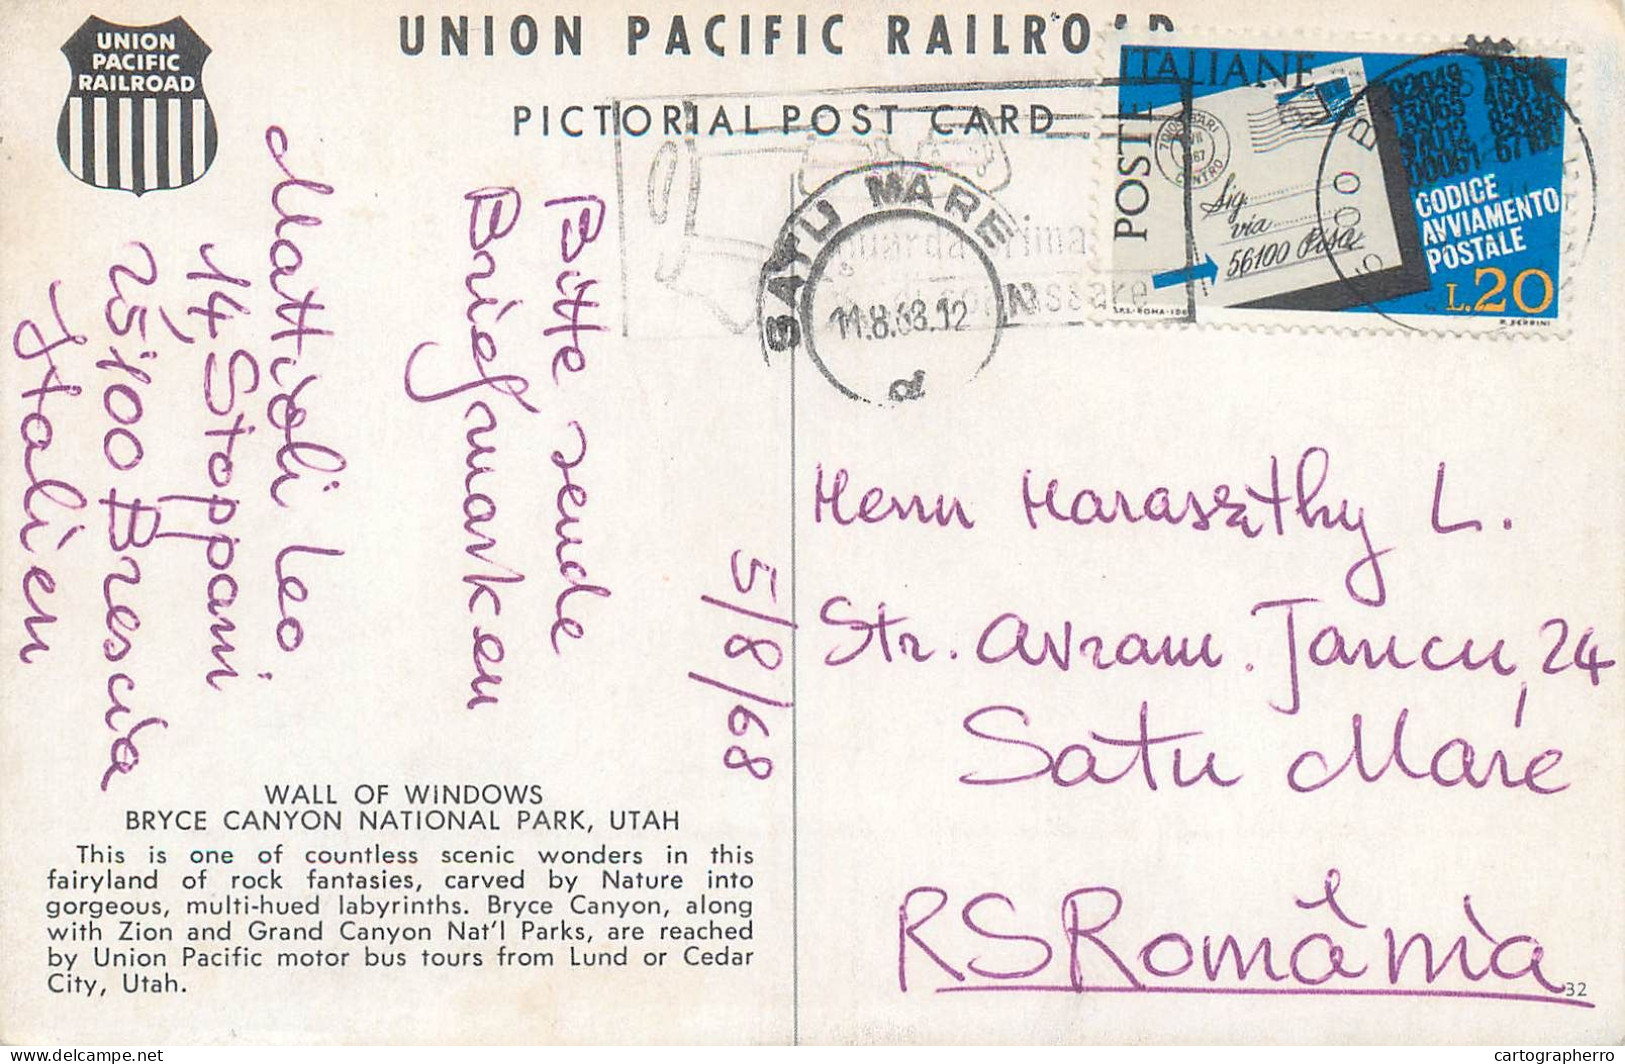 UNION
PACIFIC
RAILROAD
UNION PACIFIC RAILROAD
PICTORIAL POST CARD
Bitte sende
Briefmarken
Mattioli Leo
14, Stoppani
25100 Brescia
Italien
5/8/68
WALL OF WINDOWS
BRYCE CANYON NATIONAL PARK, UTAH
This is one of countless scenic wonders in this
fairyland of rock fantasies, carved by Nature into
gorgeous, multi-hued labyrinths. Bryce Canyon, along
with Zion and Grand Canyon Nat'l Parks, are reached
by Union Pacific motor bus tours from Lund or Cedar
City, Utah.
SATU MARE
11.8.68.12
POSTE ITALIANE
Sig.
via
56100 Pisa
CODICE
AVVIAMENTO
POSTALE
L.20
Herrn Haraszthy L.
Str. Avram Jancu, 24
Satu Mare
RSRomânia
32
delcampe.net
cartographerro